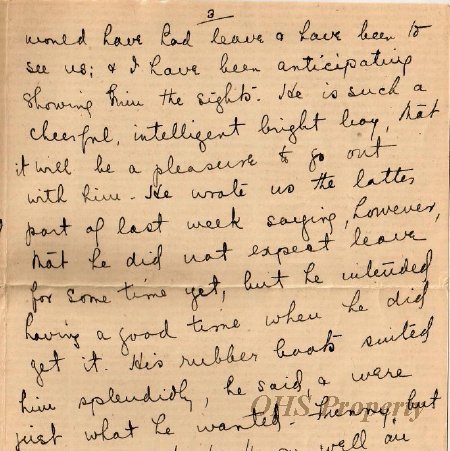 3
would have had leave & have been to
see us; & I have been anticipating
showing him the sights. He is such a
cheerful, intelligent bright boy, that
it will be a pleasure to go out
with him - He wrote us the latter
part of last week saying, however,
that he did not expect leave
for some time yet, but he intended
having a good time when he did
get it. His rubber boots suited
him splendidly, he said, & were
just what he wanted. but
well
OHS Property